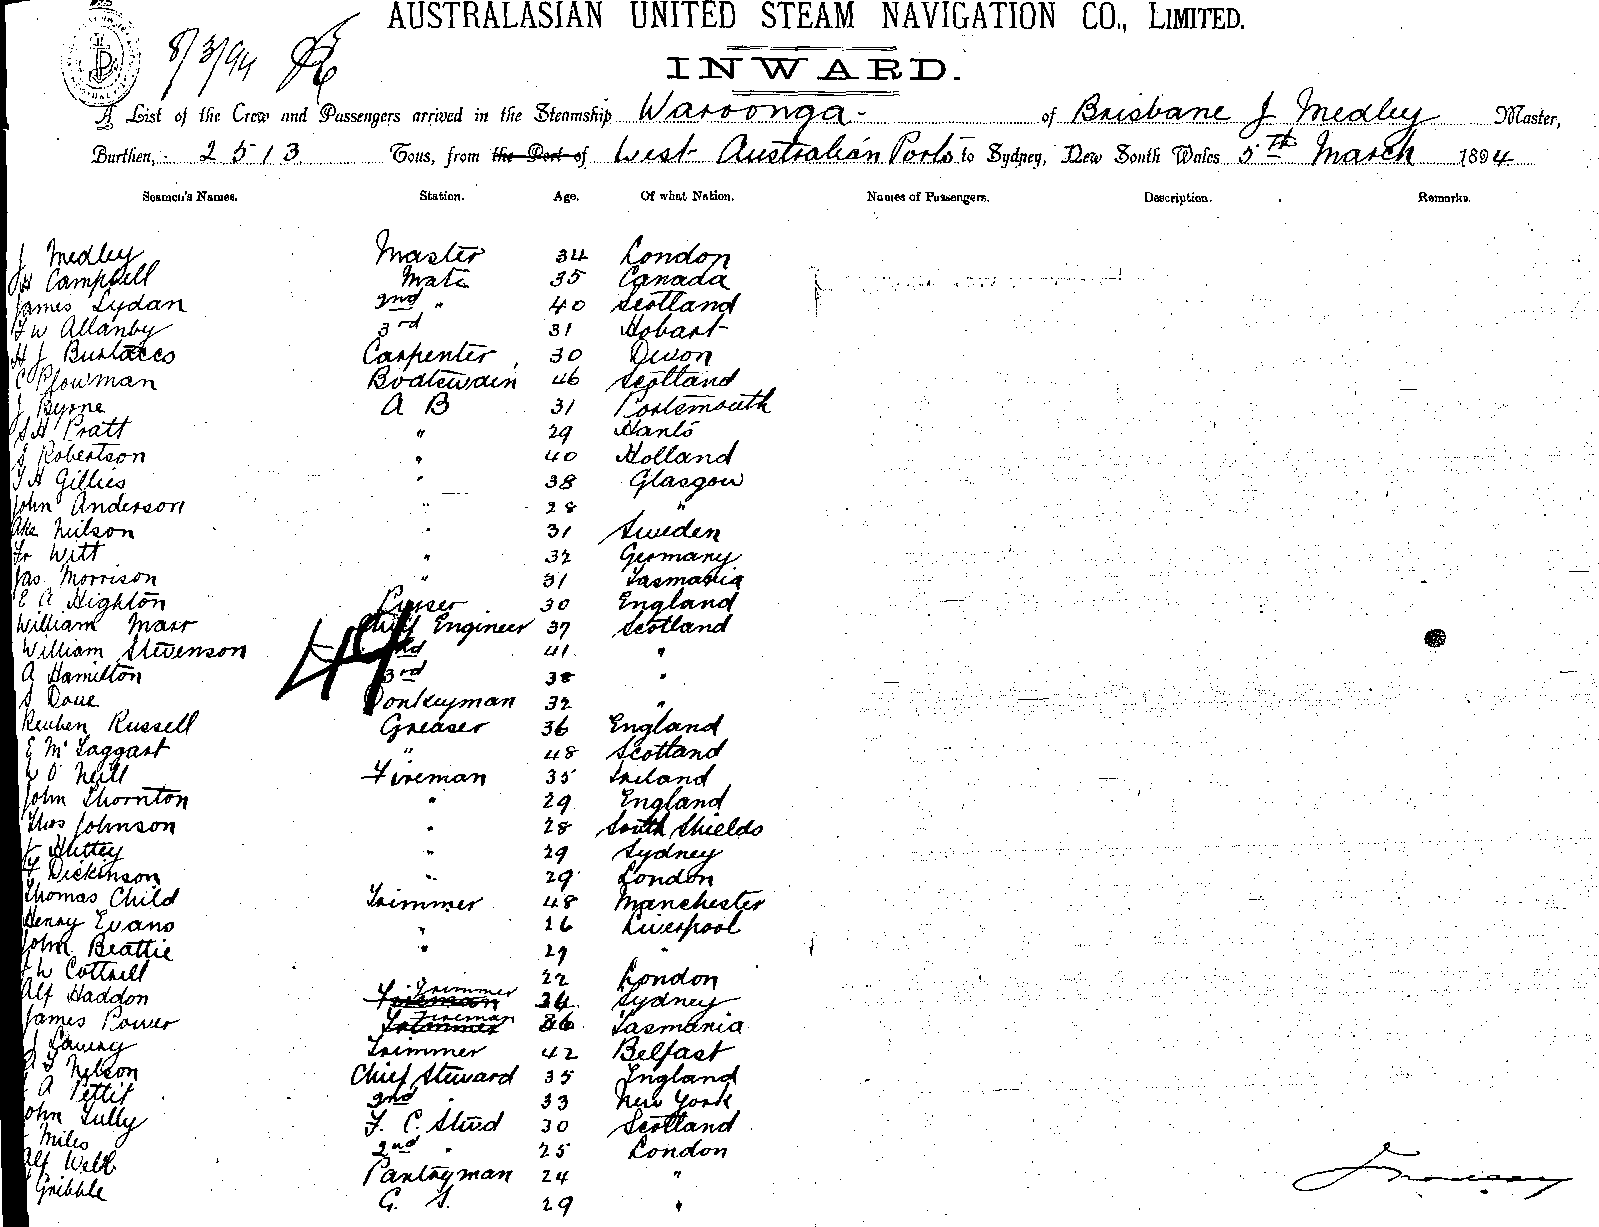 AUSTRALASIAN UNITED STEAM NAVIGATION CO., LIMITED.
8/3/94
INWARD.
A List of the Crew and Passengers arrived in the Steamship Waroonga - of Brisbane J Medley Master,
Burthen, 2513 Tons, from the Port of West Australian Ports to Sydney, New South Wales 5th March 1894
Seamen's Names. Station. Age. Of what Nation. Names of Passengers. Description. Remarks.
J Medley Master 34 London
Campbell Mate 35 Canada
James Lydan 2nd " 40 Scotland
W Allanby 3rd 31 Hobart
H J Burtacco Carpenter 30 Devon
C Plowman Boatswain 46 Scotland
J Byrne A B 31 Portsmouth
Pratt " 29 Hants
Robertson " 40 Holland
H Gillies " 38 Glasgow
John Anderson " 28 "
Neilson " 31 Sweden
Witt " 32 Germany
Jas Morrison " 31 Tasmania
E A Highton Purser 30 England
William Marr Chief Engineer 37 Scotland
William Stevenson 2nd 41 "
A Hamilton 3rd 38 "
Donkeyman 32 "
49
Reuben Russell Greaser 36 England
E McTaggart " 48 Scotland
O'Neill Fireman 35 Ireland
John Thornton " 29 England
Thos Johnson " 28 South Shields
" 29 Sydney
Dickinson " 29 London
Thomas Child Trimmer 48 Manchester
Henry Evans " 26 Liverpool
John Beattie " 29 "
W Cottrell 22 London
Alf Haddon Fireman Trimmer 34 Sydney
James Power Trimmer Fireman 36 Tasmania
Trimmer 42 Belfast
Nelson Chief Steward 35 England
A Pettit 2nd " 33 New York
John Tully F. C. Stwd 30 Scotland
Miles 2nd " 25 London
Alf Webb Pantryman 24 "
Gribble G. S. 29 "